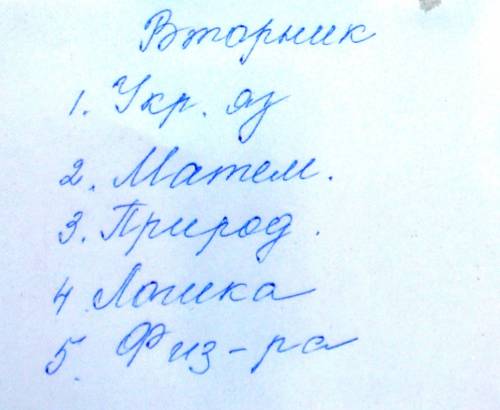 Вторник
1. Укр. яз
2. Матем.
3. Природ.
4 Логика
5. Физ-ра